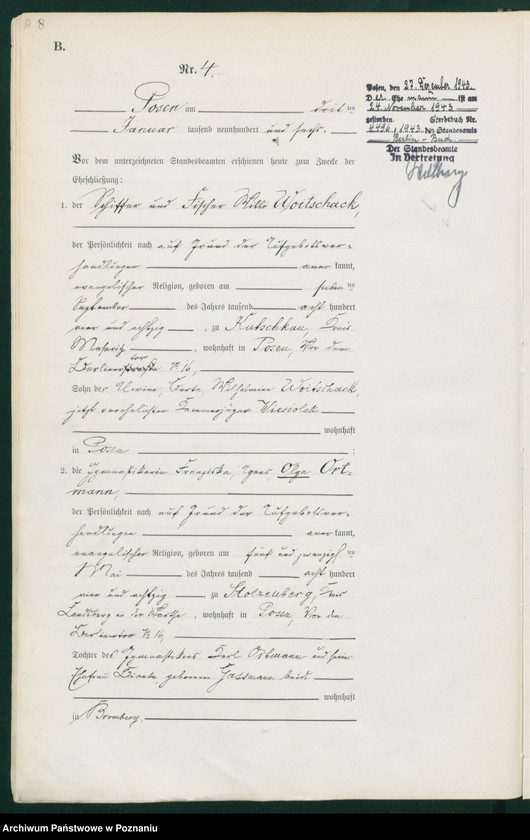 8
B.
Nr. 4.
Posen am dritten
Januar tausend neunhundert und sechs.
Vor dem unterzeichneten Standesbeamten erschienen heute zum Zwecke der
Eheschließung:
1. der Schiffer und Fischer Willi Woitschack,
der Persönlichkeit nach auf Grund der Aufgebotsver-
handlungen anerkannt,
evangelischer Religion, geboren am siebenten
September des Jahres tausend acht hundert
vier und achtzig, zu Kutschkau, Kreis
Meseritz, wohnhaft in Posen, Vor dem
Berliner tor № 16,
Sohn der Wilhelmine Woitschack,
jetzt verehelichten
wohnhaft
in Posen;
2. die Franziska, Agnes, Olga Ort-
mann,
der Persönlichkeit nach auf Grund der Aufgebotsver-
handlungen anerkannt,
evangelischer Religion, geboren am fünf und zwanzigsten
Mai des Jahres tausend acht hundert
vier und achtzig zu Stolzenberg, Kreis
Landsberg an der Warthe, wohnhaft in Posen, Vor dem
Berlinertor № 16,
Tochter des Karl Ortmann und seiner
Ehefrau geborenen Gassmann beide
wohnhaft
in Bromberg.
Posen, den 27. Dezember 1943.
D er Ehemann ist am
24. November 1943
gestorben. Sterbebuch Nr.
4496/1943 des Standesamts
Berlin-Buch
Der Standesbeamte
In Vertretung
Archiwum Państwowe w Poznaniu